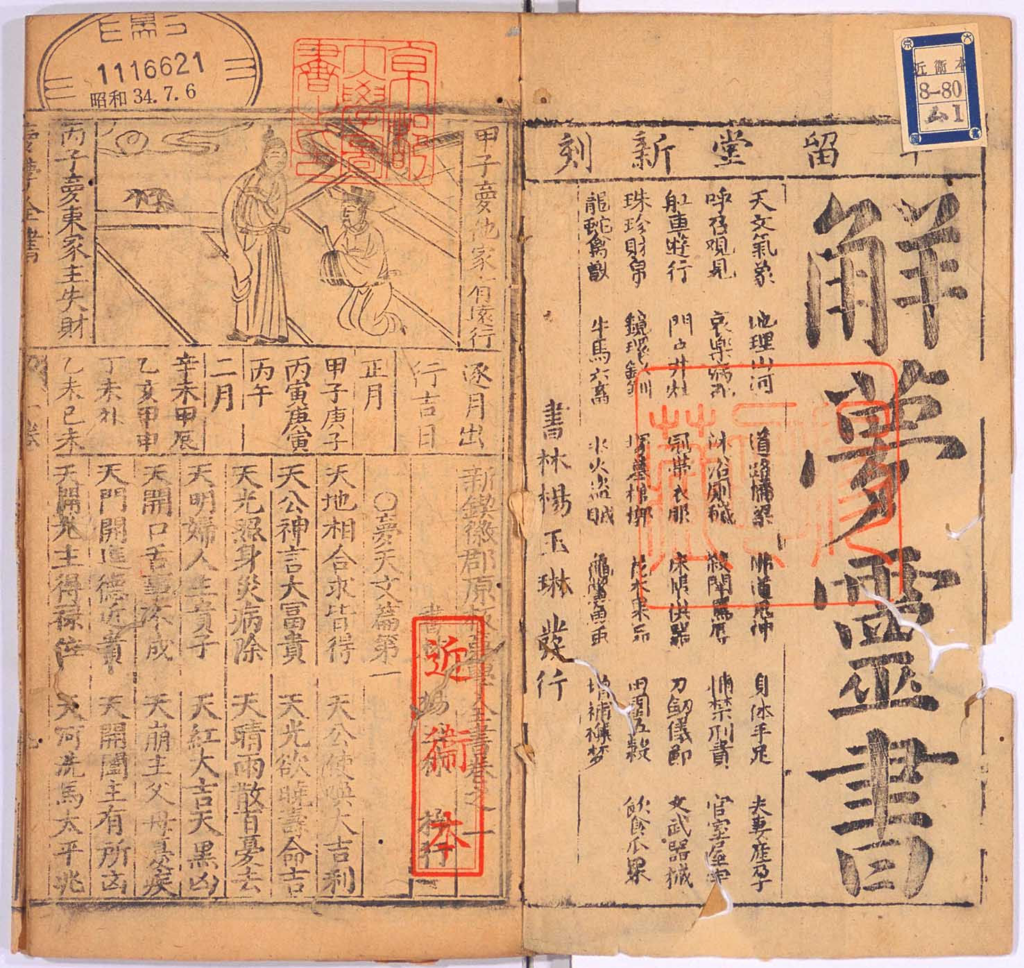 留堂新刻
解夢靈書
天文氣象 地理山河 道路橋梁 身体手足 夫妻產孕
呼召覌見 哀樂病死 沐浴厠 官室屋宇
船車遊行 門戸井灶 冠帯衣服 刀劔儀節 文武器械
珠珍財帛 鏡環釵釧 塚墓棺槨 花木果品 田園五穀 飲食瓜果
龍蛇禽獸 牛馬六畜 水火盗賊
書林楊玉琳發行
甲子夣他家有遠行
丙子夣東家主失財
逐月出
行吉日
正月
甲子庚子
丙寅庚寅
丙午
二月
辛未甲辰
乙亥甲申
丁未
乙未己未
新鍥徽郡原板夣學全書巻之一
○夣天文篇第一
天地相合求皆得 天公使喚大吉利
天公神言大富貴 天光欲曉壽命吉
天光照身災病除 天晴雨散百憂去
天明婦人生貴子 天紅大吉天黑凶
天開口舌事不成 天崩主父母眞疾
天門開進德近貴 天開闔主有所
天開 主得祿位 天河洗馬太平兆
1116621
昭和 34.7.6
近衞本
8-80
ム1
近衞本